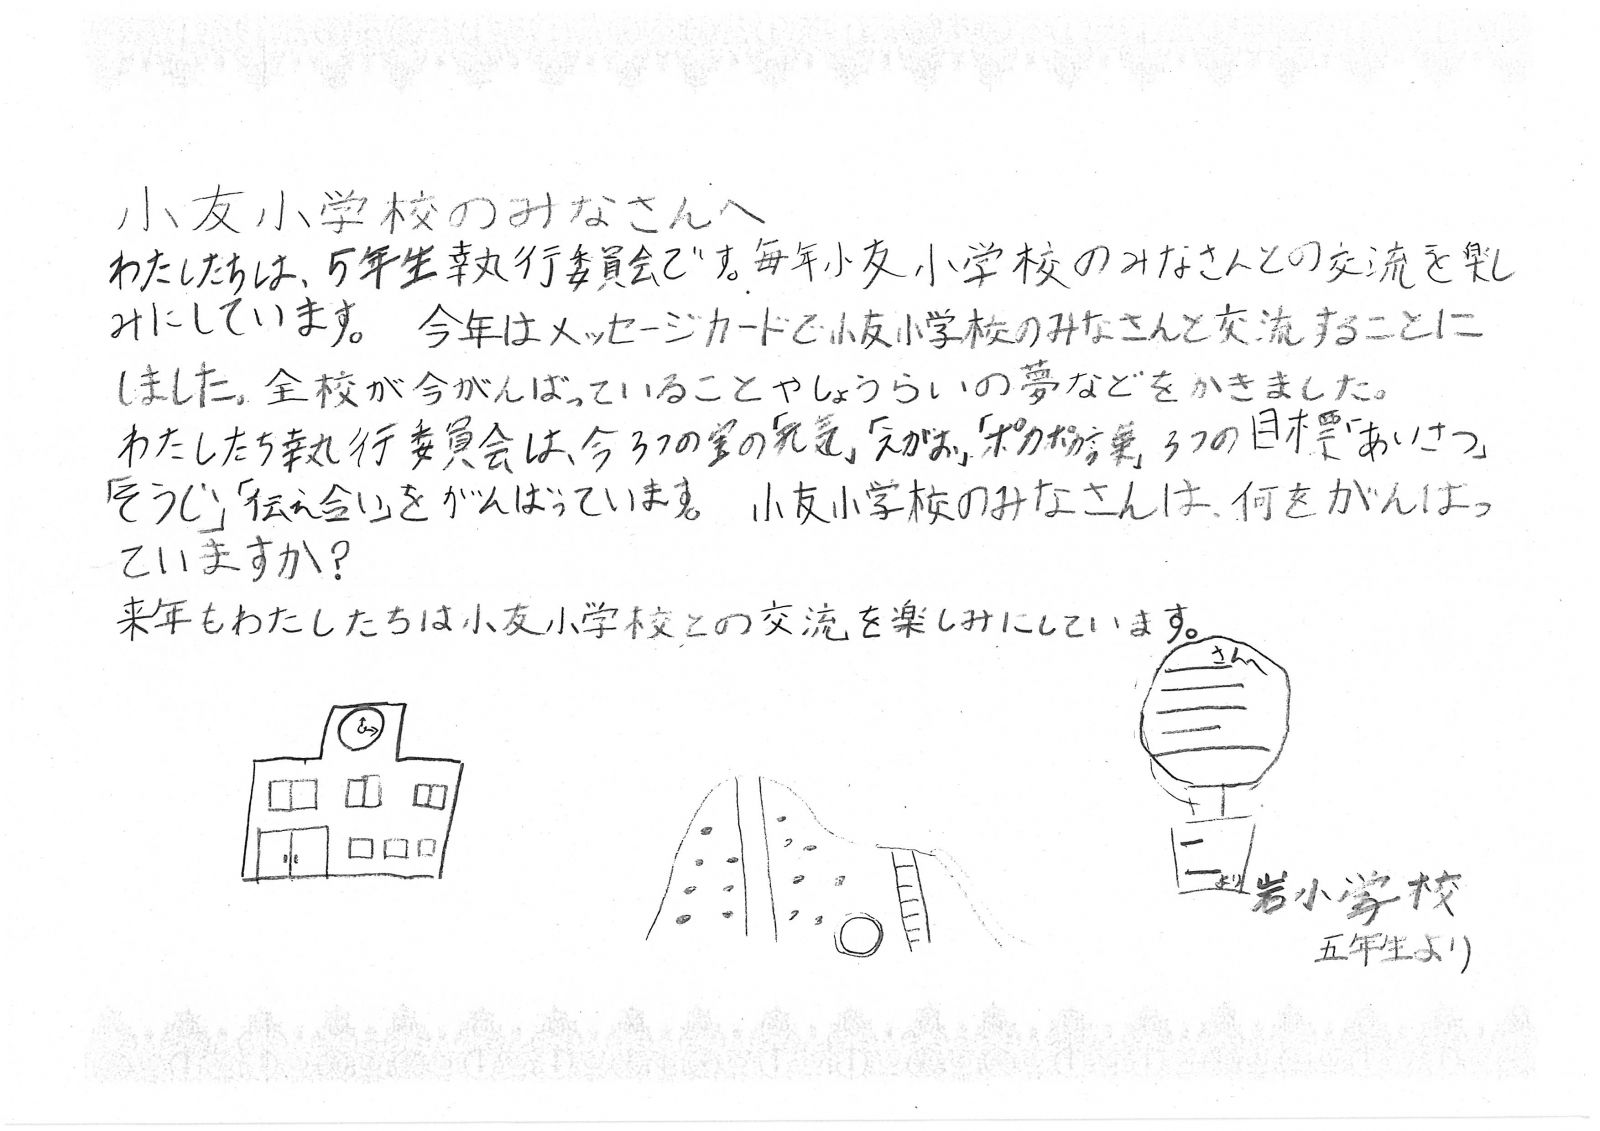 小友小学校のみなさんへ
わたしたちは、5年生執行委員会です。毎年小友小学校のみなさんとの交流を楽し
みにしています。 今年はメッセージカードで小友小学校のみなさんと交流することに
しました。全校が今がんばっていることやしょうらいの夢などをかきました。
わたしたち執行委員会は、今3つの宝の「元気」「えがお」「ポカポカ言葉」3つの目標「あいさつ」
「そうじ」「伝え合い」をがんばっています。 小友小学校のみなさんは、何をがんばっ
ていますか?
来年もわたしたちは小友小学校との交流を楽しみにしています。
さんへ
より
岩小学校
五年生より